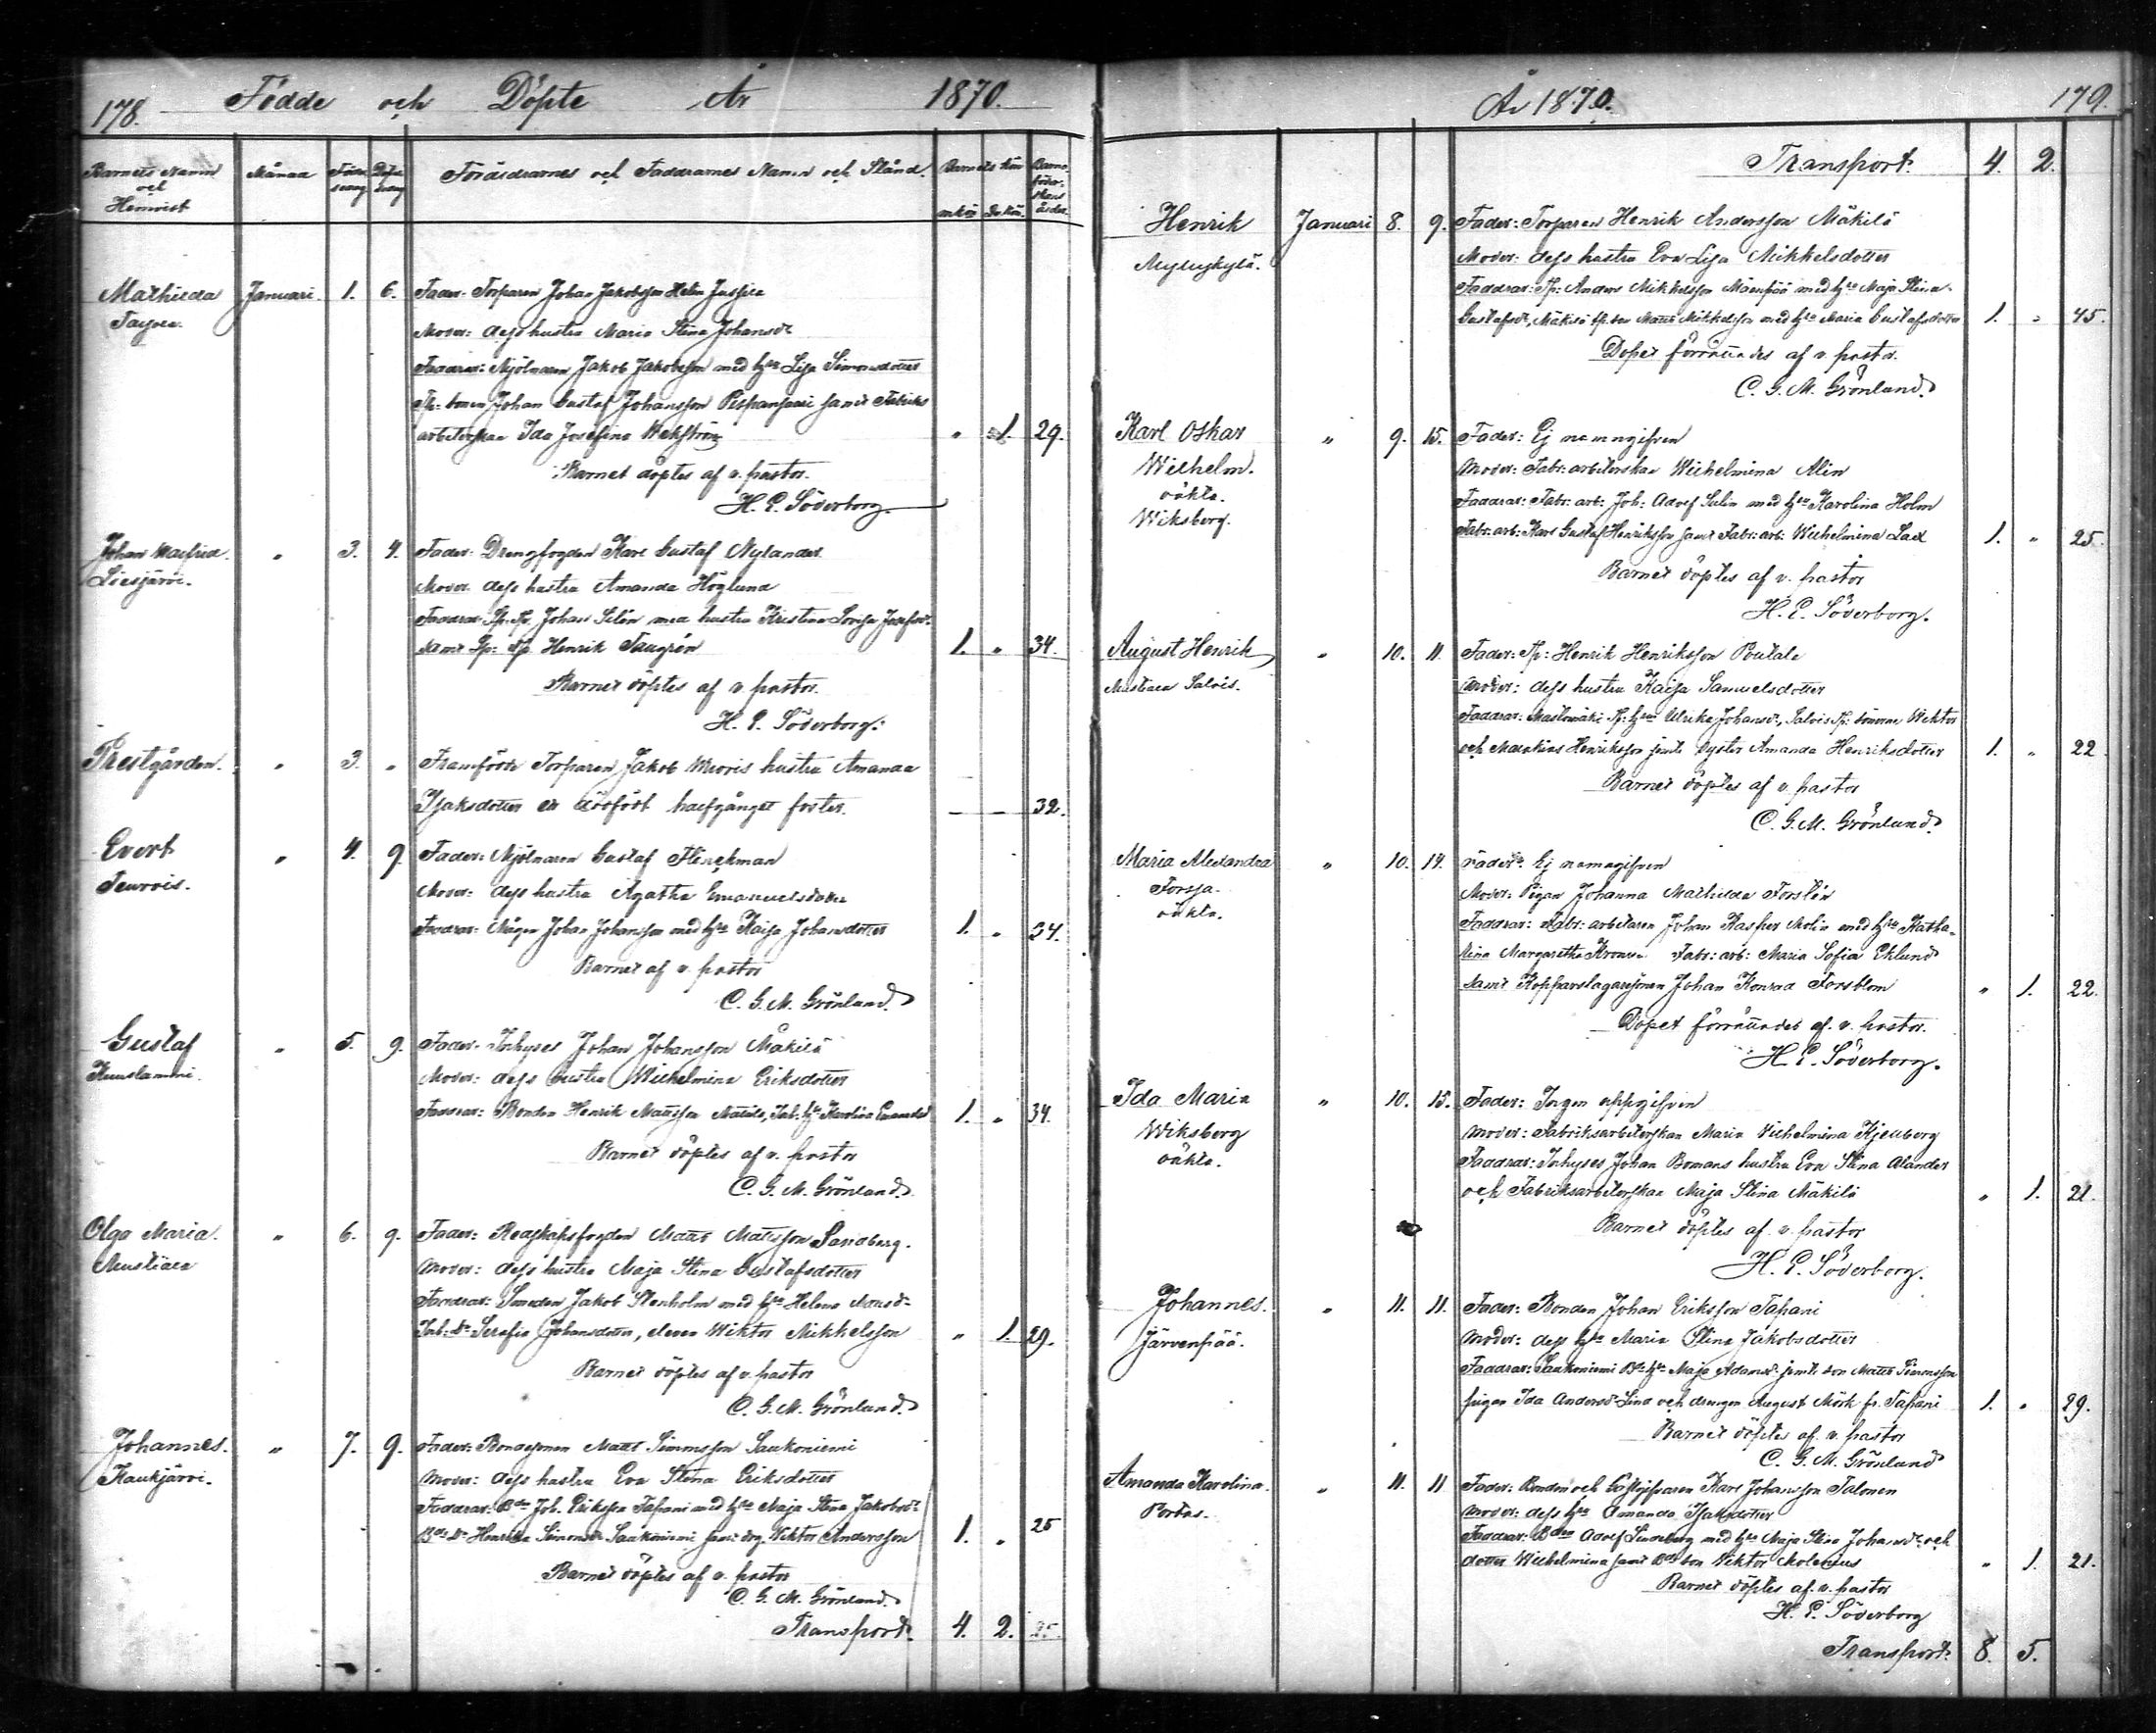 178. Födde och Döpte År 1870.
Barnets Namn och Hemvist
Månad
Föräldrarnes och Faddrarnes Namn och Stånd.
Barnets kön
mkön qvkön
Mathilda Januari 1. 6. Fader: Torparen Johan Jakobsson
Moder: dess hustru Maria Stina Johansdr
Faddrar: Mjölnaren Jakob Jakobsson med hru Lisa Simonsdotter
Tp: sonen Johan Gustaf Johansson samt Fabriks
arbeterskan Ida Josefina „ 1. 29.
Barnet döptes af v. pastor.
H. E. Söderborg.
Johan Walfrid „ 3. 4. Fader: Drengfogden Karl Gustaf Nylander
Liesjärvi.
Moder: dess hustru Amanda Höglund
Faddrar: Johan Selén med hustru Kristina Lovisa Josefsdr
samt Henrik 1. „ 34.
Barnet döptes af v. pastor.
H. E. Söderborg.
Prestgården. „ 3. „ Framförde Torparen Jakob hustru Amanda
Isaksdotter ett dödfödt halfgånget foster. — — 32.
Evert „ 4. 9. Fader: Mjölnaren Gustaf Flinckman
Teurois.
Moder: dess hustru Agatha Emanuelsdotter
Faddrar: Mågen Johan Johansson med hru Kaisa Johansdotter 1. „ 34.
Barnet af v. pastor
C. G. M. Grönlund.
Gustaf „ 5. 9. Fader: Inhyses Johan Johansson Mäkilä
Kuuslammi.
Moder: dess hustru Wilhelmina Eriksdotter
Faddrar: Bonden Henrik Mattsson Inh: hru Karolina 1. „ 34.
Barnet döptes af v. pastor
C. G. M. Grönlund.
Olga Maria. „ 6. 9. Fader: Redskapsfogden Matts Mattsson Sandberg.
Mustiala
Moder: dess hustru Maja Stina Gustafsdotter
Faddrar: Smeden Jakob Stenholm med hru Helena
Inh: dr Serafia Johansdotter, eleven Wiktor Mikkelsson „ 1. 29.
Barnet döptes af v. pastor
C. G. M. Grönlund.
Johannes. „ 7. 9. Fader: Bondesonen Matts Simonsson Saukoniemi
Kaukjärvi.
Moder: dess hustru Eva Stina Eriksdotter
Faddrar: Bdn Joh. Eriksson Tapani med hru Maja Stina Jakobsdr
Bde dr Henrika Simonsdr Saukoniemi samt drg. Wiktor Andersson 1. „ 25
Barnet döptes af v. pastor
C. G. M. Grönlund.
Transport. 4. 2.
År 1870. 179.
Transport. 4. 2.
Henrik Januari 8. 9. Fader: Torparen Henrik Andersson Mäkilä
Moder: dess hustru Eva Lisa Mikkelsdotter
Faddrar: Tp: Anders Mikkelsson Mäenpää med hru Maja Stina
Gustafsdr, Mäkilä tp. son Matts Mikkelsson med hru Maria Gustafsdotter 1. „ 45.
Dopet förrättades af v. pastor.
C. G. M. Grönlund.
Karl Oskar „ 9. 15. Fader: Ej namngifven
Wilhelm.
oäkta.
Wiksberg.
Moder: Fabr: arbeterskan Wilhelmina Alin
Faddrar: Fabr: arb: Joh: Adolf Sulin med hru Karolina Holm
Fabr: arb: Karl Gustaf Henriksson samt Fabr: arb: Wilhelmina Lad 1. „ 25.
Barnet döptes af v. pastor
H. E. Söderborg.
August Henrik „ 10. 11. Fader: Tp: Henrik Henriksson
Mustiala Salois.
Moder: dess hustru Kaisa Samuelsdotter
Faddrar: Mastomäki Tp: hrun Ulrika Johansdr, Salois Tp: sönerne Wiktor
och Mathias Henriksson jemte syster Amanda Henriksdotter 1. „ 22.
Barnet döptes af v. pastor
C. G. M. Grönlund.
Maria Alexandra „ 10. 14. Fader: Ej namngifven
Forssa.
oäkta.
Moder: Pigan Johanna Mathilda Forslén
Faddrar: Fabr: arbetaren Johan Kasper Molin med hru Katha-
rina Margaretha Fabr: arb: Maria Sofia Eklund
samt Kopparslagaresonen Johan Konrad Forsblom „ 1. 22.
Dopet förrättades af v. pastor.
H. E. Söderborg.
Ida Maria „ 10. 15. Fader: Ingen uppgifven
Wiksberg
oäkta.
Moder: Fabriksarbeterskan Maria Wilhelmina
Faddrar: Inhyses Johan Bomans hustru Eva Stina Alander
och Fabriksarbeterskan Maja Stina Mäkilä „ 1. 21.
Barnet döptes af v. pastor
H. E. Söderborg.
Johannes. „ 11. 11. Fader: Bonden Johan Eriksson Tapani
Järvenpää.
Moder: dess hru Maria Stina Jakobsdotter
Faddrar: Saukoniemi Bde hru Maja Adamsdr jemte son Matts Simonsson
pigan Ida Andersdr Lind och drengen August Mörk fr. Tapani 1. „ 29.
Barnet döptes af v. pastor
C. G. M. Grönlund
Amanda Karolina. „ 11. 11 Fader: Bonden och Gästgifvaren Karl Johansson Talonen
Portas.
Moder: dess hru Amanda Isaksdotter
Faddrar: Bden Adolf Lindeberg med hru Maja Stina Johansdr och
dotter Wilhelmina samt Bde son Viktor „ 1. 21.
Barnet döptes af v. pastor
H. E. Söderborg
Transport. 8. 5.